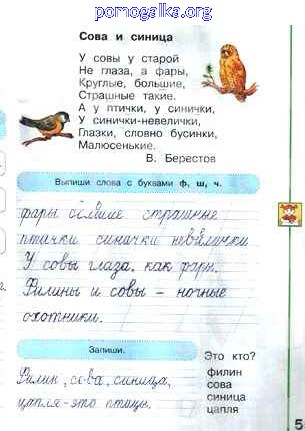 pomogalka.org
Сова и синица
У совы у старой
Не глаза, а фары,
Круглые, большие,
Страшные такие.
А у птички, у синички,
У синички-невелички,
Глазки, словно бусинки,
Малюсенькие.
В. Берестов
Выпиши слова с буквами ф, ш, ч.
фары большие страшные
птички синички невелички
У совы глаза, как фары.
Филины и совы – ночные
охотники.
Запиши.
Это кто?
филин
сова
синица
цапля
Филин, сова, синица,
цапля-это птицы.
5